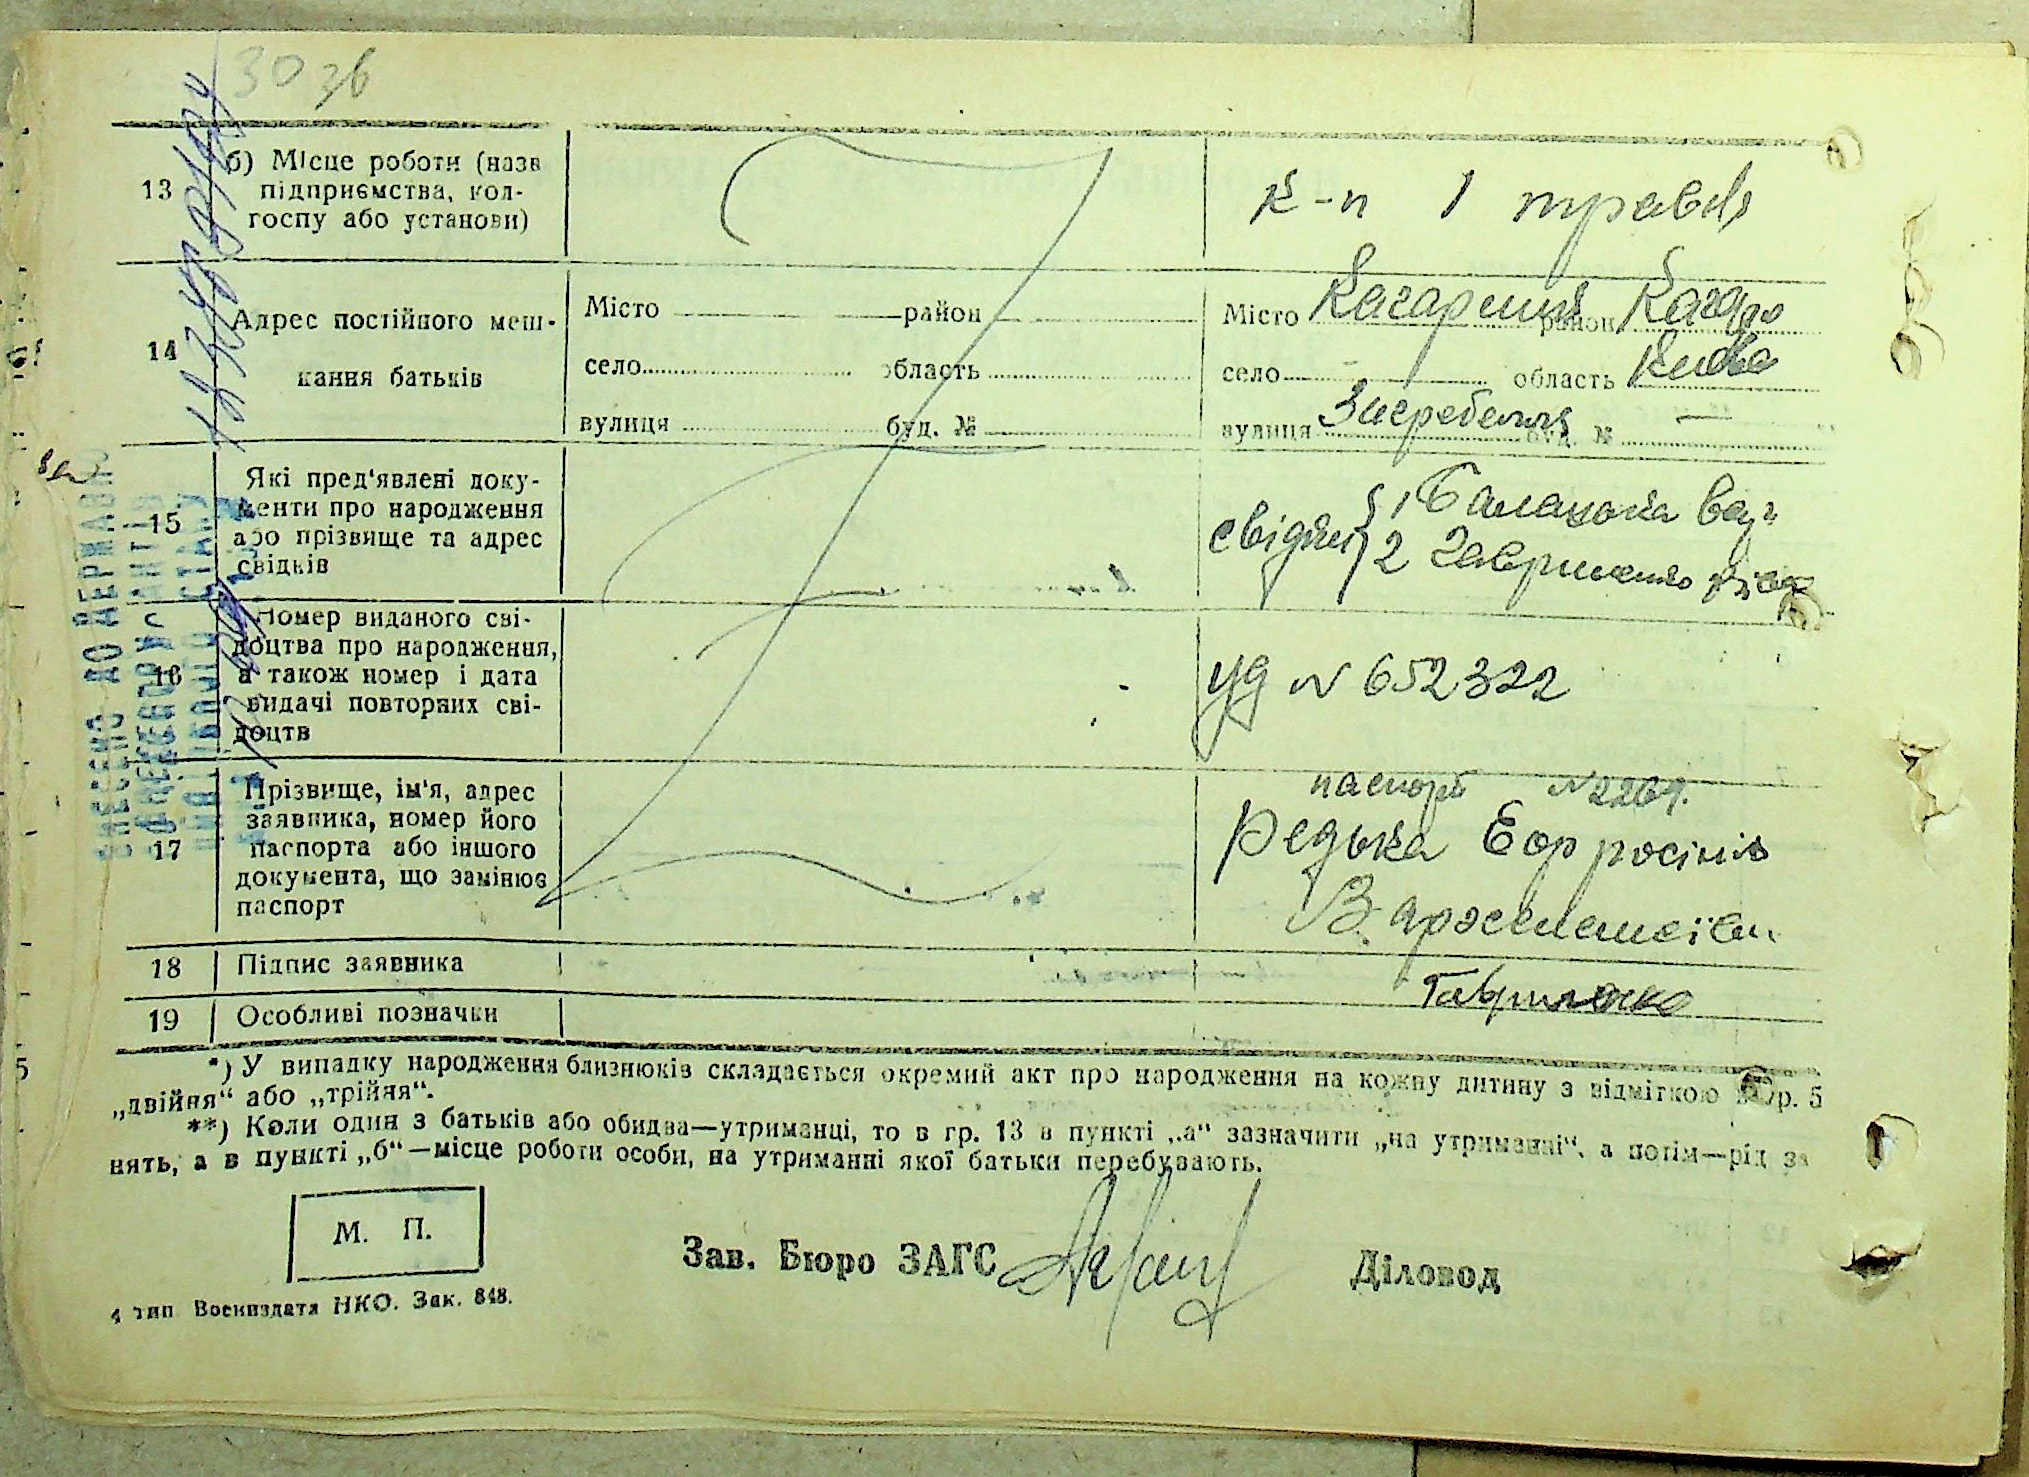 30 зв
13
б) Місце роботи (назв
підприємства, кол-
госпу або установи)
к-п 1 травня
14
Адрес постійного меш-
кання батьків
Місто район
село область
вулиця буд. №
Місто Кагарлик район Кагар
село — область Київс
вулиця Загребелля буд. № —
15
Які пред'явлені доку-
менти про народження
або прізвище та адрес
свідків
свідки 1
2
16
Номер виданого сві-
доцтва про народження,
а також номер і дата
видачі повторних сві-
доцтв
УД № 652322
17
Прізвище, ім'я, адрес
заявника, номер його
паспорта або іншого
документа, що замінює
паспорт
паспорт №
Редька
18 Підпис заявника
Гавриленко
19 Особливі позначки
*) У випадку народження близнюків складається окремий акт про народження на кожну дитину з відміткою в гр. 5
„двійня“ або „трійня“.
**) Коли один з батьків або обидва—утриманці, то в гр. 13 в пункті „а“ зазначити „на утриманні“, а потім—рід за
нять, а в пункті „б“—місце роботи особи, на утриманні якої батьки перебувають.
М. П.
Зав. Бюро ЗАГС
Діловод
4 тип Воениздата НКО. Зак. 848.
ВНЕСЕНО ДО ДЕРЖАВНО